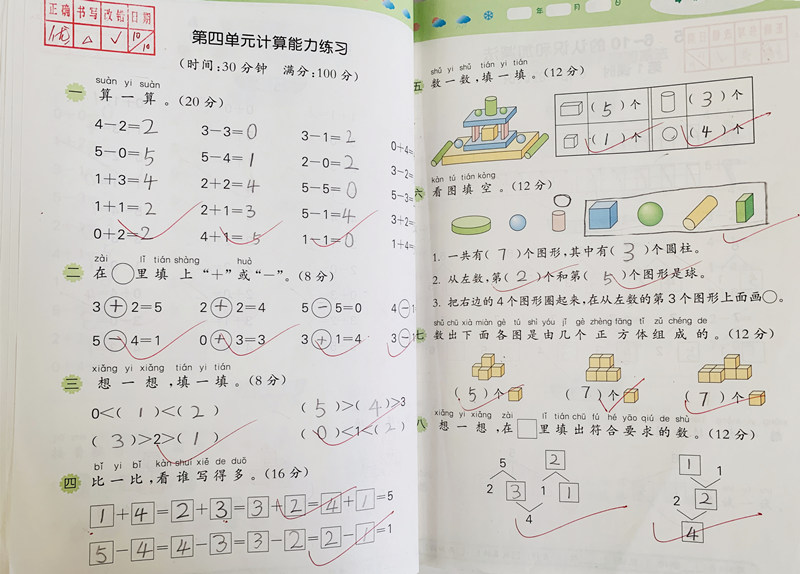 正确 书写 改错 日期
优 △ √ 10/10
第四单元计算能力练习
(时间:30分钟 满分:100分)
suàn yi suàn
一 算一算。(20分)
4-2=2 3-3=0 3-1=2 0+4=
5-0=5 5-4=1 2-0=2 3-2=
1+3=4 2+2=4 5-5=0 5-3=
1+1=2 2+1=3 5-1=4 3+2=
0+2=2 4+1=5 1-1=0 1+4=
zài lǐ tián shàng huò
二 在○里填上“+”或“-”。(8分)
3+2=5 2+2=4 5-5=0 4-
5-4=1 0+3=3 3+1=4 3-
xiǎng yi xiǎng tián yi tián
三 想一想,填一填。(8分)
0<(1)<(2) (5)>(4)>3
(3)>2>(1) (0)<1<(2)
bǐ yi bǐ kàn shuí xiě de duō
四 比一比,看谁写得多。(16分)
1+4=2+3=3+2=4+1=5
5-4=4-3=3-2=2-1=1
年 月 日
shǔ yi shǔ tián yi tián
五 数一数,填一填。(12分)
(5)个 (3)个
(1)个 (4)个
kàn tú tián kòng
六 看图填空。(12分)
1. 一共有(7)个图形,其中有(3)个圆柱。
2. 从左数,第(2)个和第(5)个图形是球。
3. 把右边的4个图形圈起来,在从左数的第3个图形上面画○。
shǔ chū xià miàn gè tú shì yóu jǐ gè zhèng fāng tǐ zǔ chéng de
七 数出下面各图是由几个正方体组成的。(12分)
(5)个 (7)个 (7)个
xiǎng yi xiǎng zài lǐ tián chū fú hé yāo qiú de shù
八 想一想,在□里填出符合要求的数。(12分)
5 2 1 1
2 3 1 1 2 2
4 4